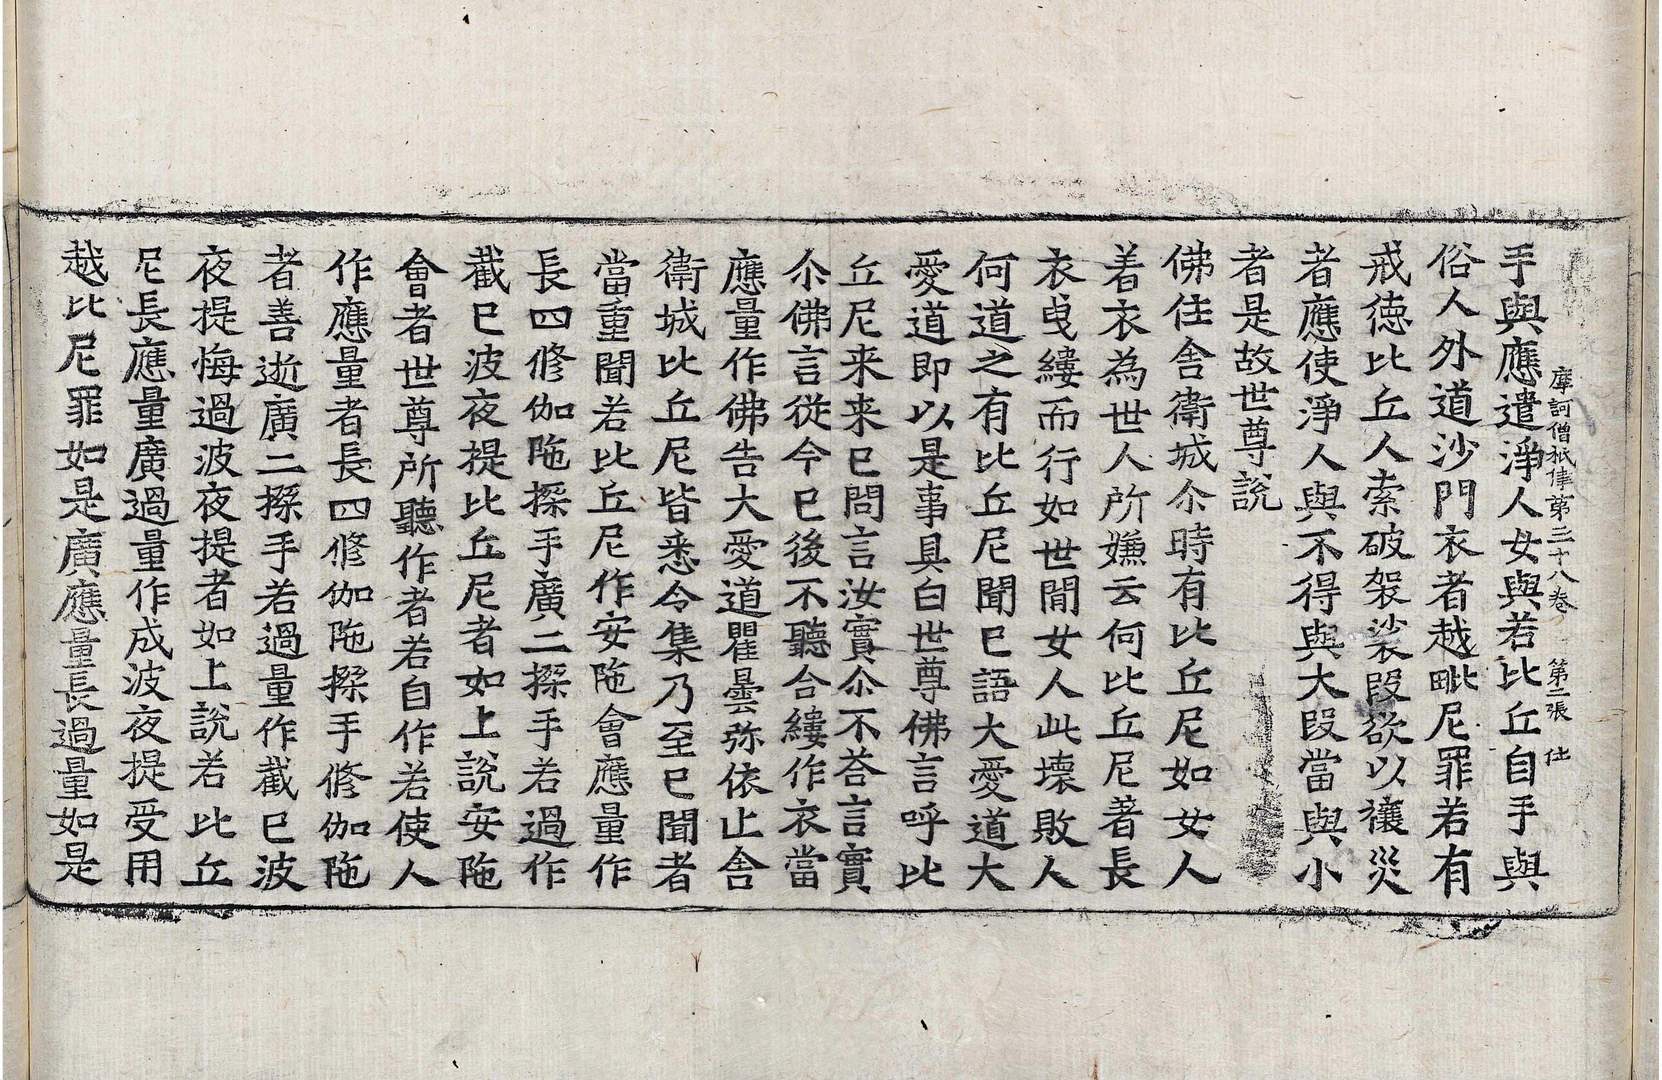 摩訶僧祇律第三十八卷 第二張 仕
手與應遣淨人女與若比丘自手與
俗人外道沙門衣者越毗尼罪若有
戒徳比丘人索破袈裟段欲以禳災
者應使淨人與不得與大段當與小
者是故世尊說
佛住舍衛城尒時有比丘尼如女人
着衣為世人所嫌云何比丘尼著長
衣曵縷而行如世閒女人此壊敗人
何道之有比丘尼聞已語大愛道大
愛道即以是事具白世尊佛言呼比
丘尼来来已問言汝實尒不荅言實
尒佛言從今已後不聽合縷作衣當
應量作佛告大愛道瞿曇弥依止舍
衛城比丘尼皆悉令集乃至已聞者
當重聞若比丘尼作安陁會應量作
長四修伽陁搩手廣二搩手若過作
截已波夜提比丘尼者如上說安陁
會者世尊所聽作者若自作若使人
作應量者長四修伽陁搩手修伽陁
者善逝廣二搩手若過量作截已波
夜提悔過波夜提者如上說若比丘
尼長應量廣過量作成波夜提受用
越比尼罪如是廣應量長過量如是